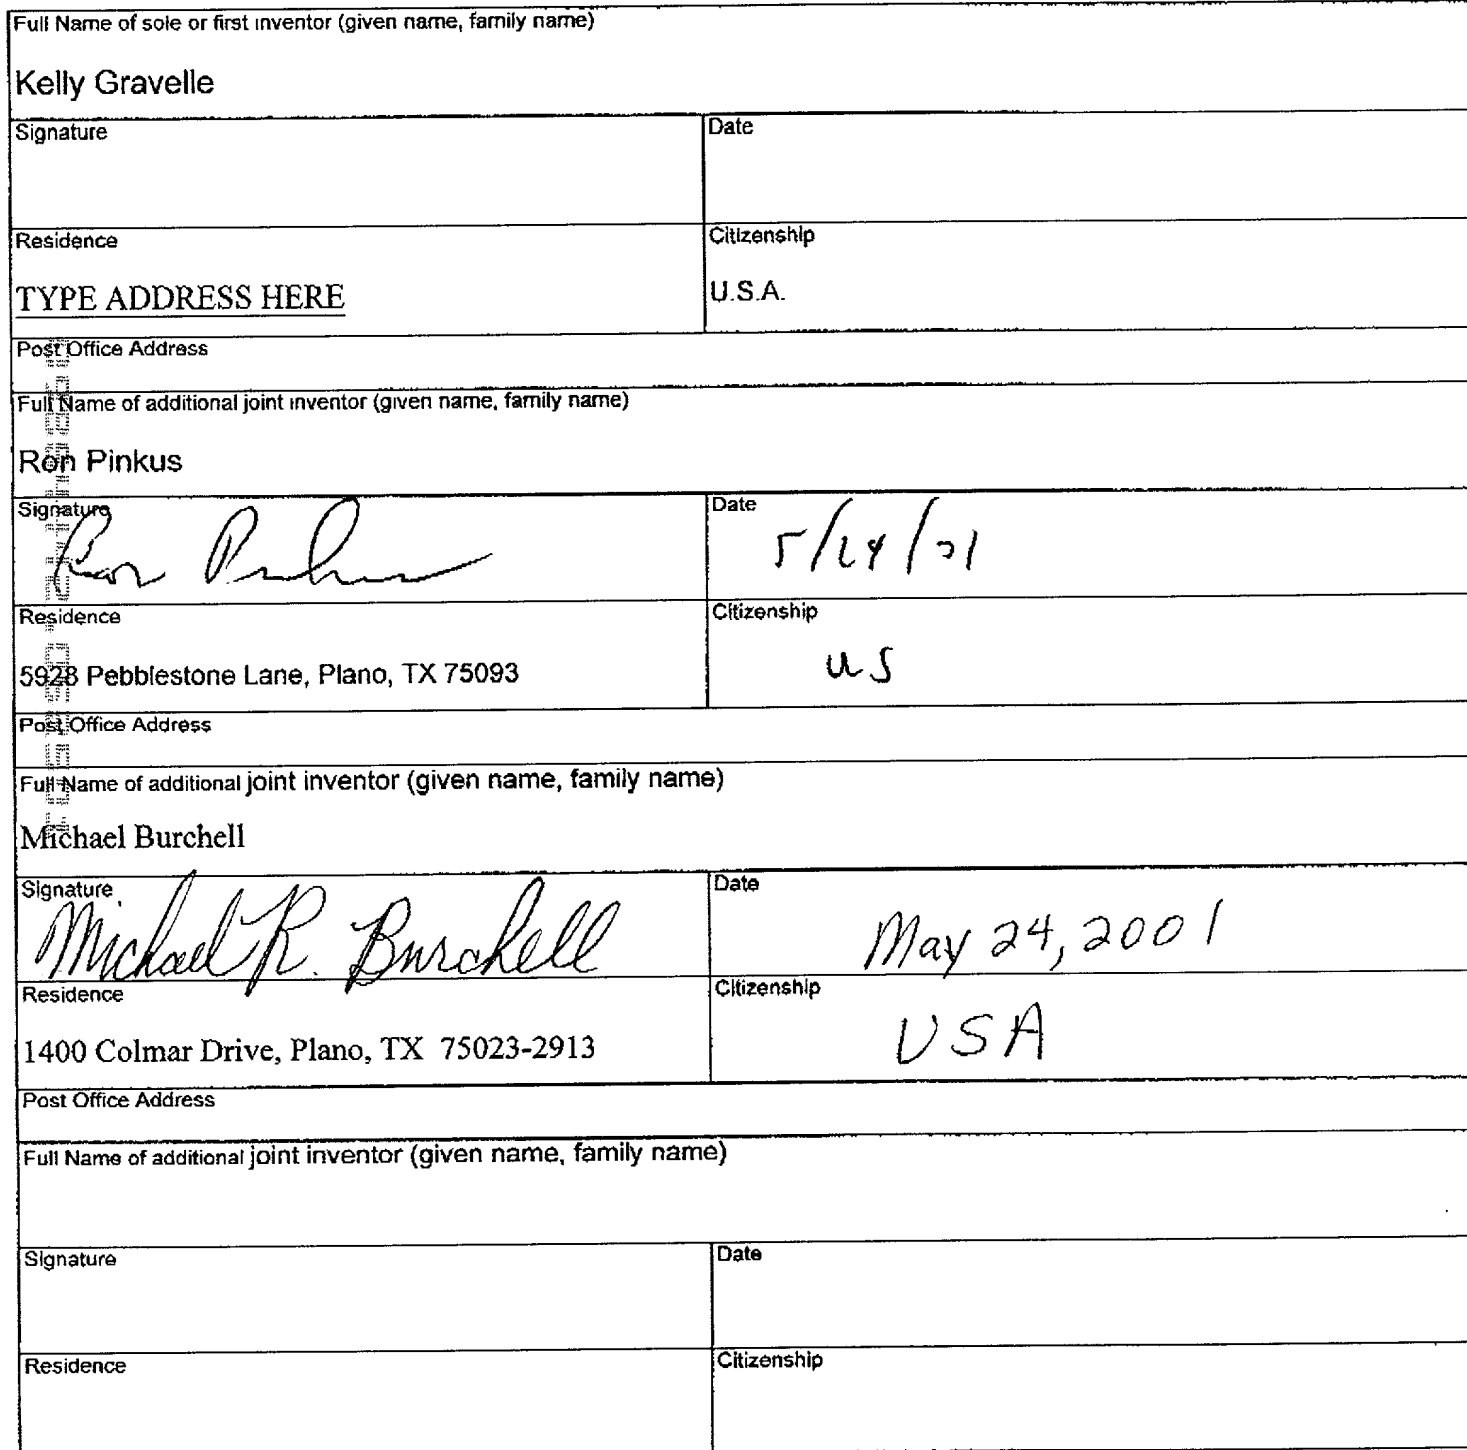 Full Name of sole or first inventor (given name, family name)
Kelly Gravelle
Signature
Date
Residence
Citizenship
TYPE ADDRESS HERE
U.S.A.
Post Office Address
Full Name of additional joint inventor (given name, family name)
Ron Pinkus
Signature
Date
Ron Pinkus
5/24/01
Residence
Citizenship
5928 Pebblestone Lane, Plano, TX 75093
US
Post Office Address
Full Name of additional joint inventor (given name, family name)
Michael Burchell
Signature
Date
Michael R. Burchell
May 24, 2001
Residence
Citizenship
1400 Colmar Drive, Plano, TX 75023-2913
USA
Post Office Address
Full Name of additional joint inventor (given name, family name)
Signature
Date
Residence
Citizenship